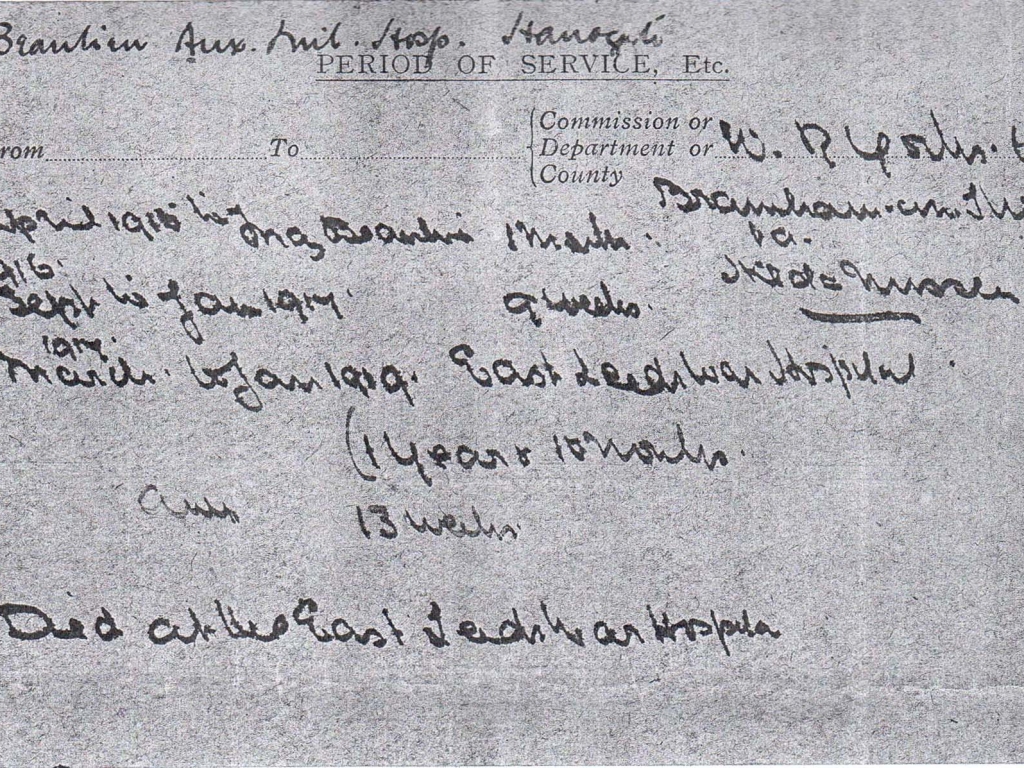 Beaulieu Aux. Mil. Hosp. Harrogate
PERIOD OF SERVICE, Etc.
rom To Commission or
Department or W. R Yorks.
County
April 1915 to May Beaulieu 1 Month. Bramham
916.
Sept to Jan 1917. 9 weeks.
1917.
March. to Jan 1919. East Leeds War Hospital.
(1 Year & 10 Months.
13 weeks.
Died at the East Leeds War Hospital